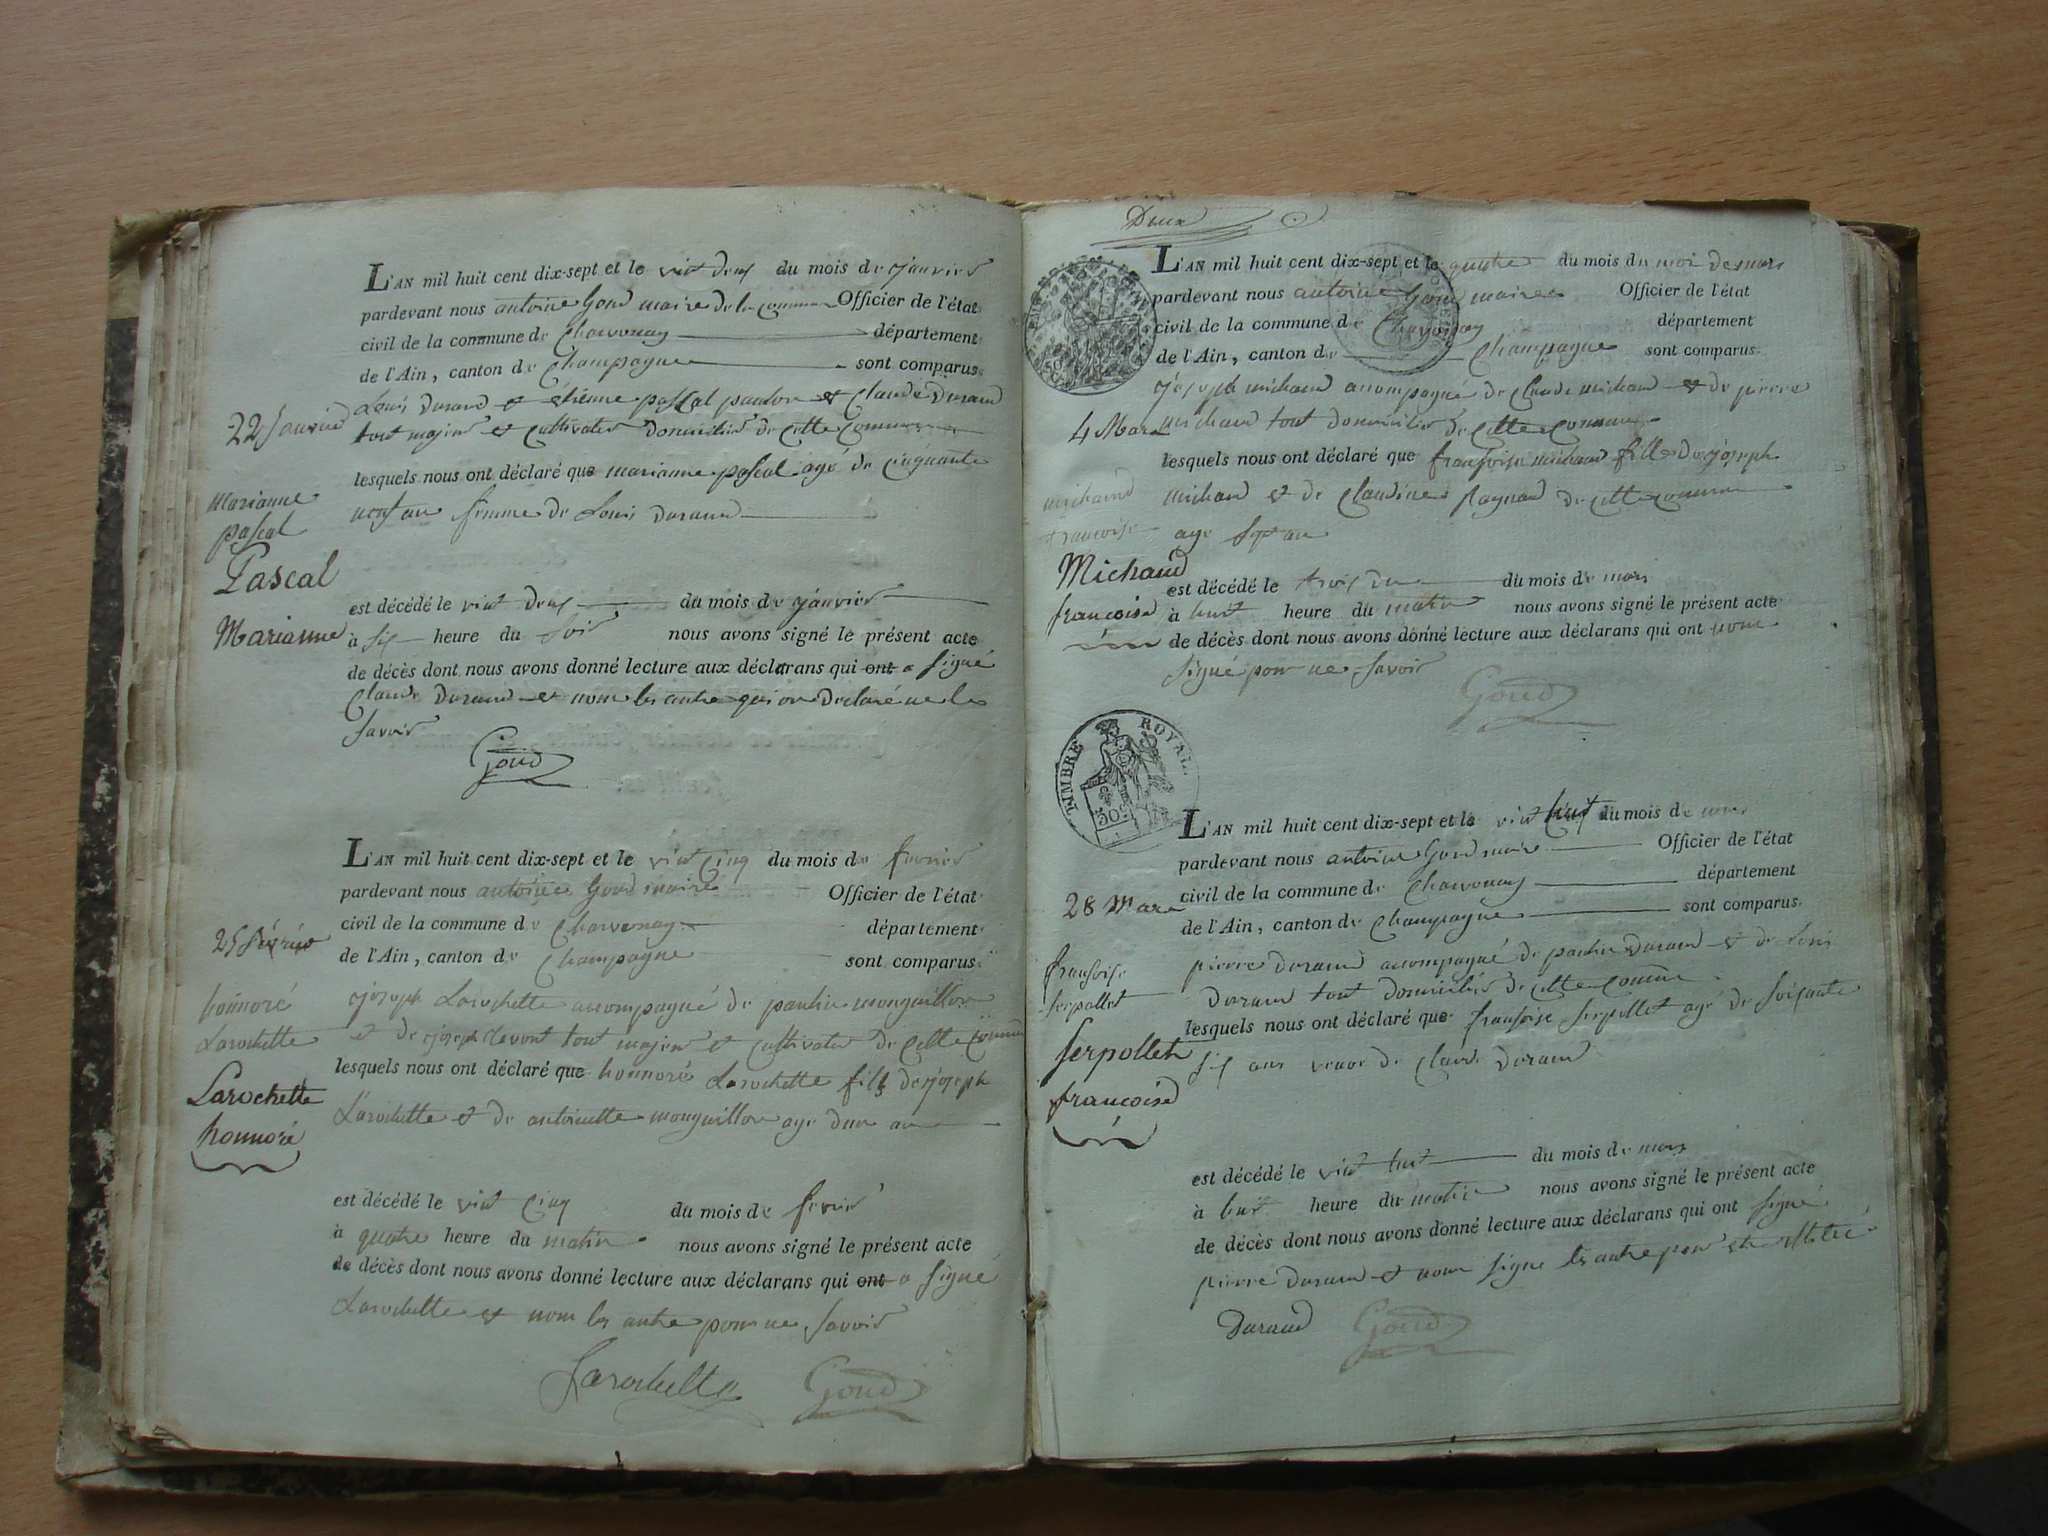 L'AN mil huit cent dix-sept et le vint deux du mois de janvier
pardevant nous antoine Goud maire de la commune Officier de l'état
civil de la commune de Chavornay département
de l'Ain, canton de Champagne sont comparus
Louis durand et étienne pascal paulon et Claude durand
22 Janvier
tout majeur et cultivater domicilié de cette commune
lesquels nous ont déclaré que marianne pascal agé de cinquante
marianne
pascal
neuf an femme de Louis durand
Pascal
Marianne
est décédé le vint deux du mois de janvier
à six heure du soir nous avons signé le présent acte
de décès dont nous avons donné lecture aux déclarans qui ont a signé
Claude durand et nom les autre qui on déclaré ne le
savoir
Goud
L'AN mil huit cent dix-sept et le vint cinq du mois de fevrier
pardevant nous antoine Goud maire Officier de l'état
civil de la commune de Chavornay département
25 février
de l'Ain, canton de Champagne sont comparus
honnoré
Larochette
joseph Larochette accompagné de paulin monguillon
et de joseph tout majeur et cultivater de cette commune
lesquels nous ont déclaré que honnoré Larochette fils de joseph
Larochette
honnoré
Larochette et de antoinette monguillon age dun an
est décédé le vint cinq du mois de fevrier
à quatre heure du matin nous avons signé le présent acte
de décès dont nous avons donné lecture aux déclarans qui ont a signé
Larochette et nom les autre pour ne savoir
Larochette Goud
Deux
L'AN mil huit cent dix-sept et le quatre du mois du moi de mars
pardevant nous antoine Goud maire Officier de l'état
civil de la commune de Chavornay département
de l'Ain, canton de Champagne sont comparus
50
joseph michaud acompagné de Claude michaud et de pierre
4 Mars
michaud tout domicilié de cette commune
lesquels nous ont déclaré que françoise michaud fille de joseph
michaud
francoise
michaud et de Claudine de cette commune
age sept an
Michaud
francoise
est décédé le trois du du mois de mars
à huit heure du matin nous avons signé le présent acte
de décès dont nous avons donné lecture aux déclarans qui ont nom
signé pour ne savoir
Goud
TIMBRE ROYAL
50
L'AN mil huit cent dix-sept et le vint huit du mois de mars
pardevant nous antoine Goud maire Officier de l'état
civil de la commune de Chavornay département
28 Mars
de l'Ain, canton de Champagne sont comparus
françoise
serpollet
pierre durand accompagné de paulin durand et de Louis
durand tout domicilié de cette commune
lesquels nous ont déclaré que françoise serpollet agé de soisante
serpollet
francoise
six ans veuve de Claude durand
est décédé le vint huit du mois de mars
à huit heure du matin nous avons signé le présent acte
de décès dont nous avons donné lecture aux déclarans qui ont signé
pierre durand et nom signe les autre pour
Durand Goud